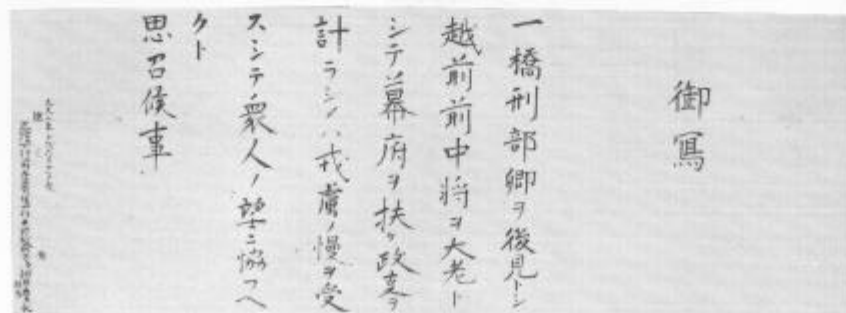 御寫
一橋刑部卿ヲ後見トシ
越前前中将ヲ大老ト
シテ幕府ヲ扶ケ政事ヲ
計ラシメハ戎虜ノ慢ヲ受
スシテ衆人ノ望ニ協フヘ
クト
思召候事